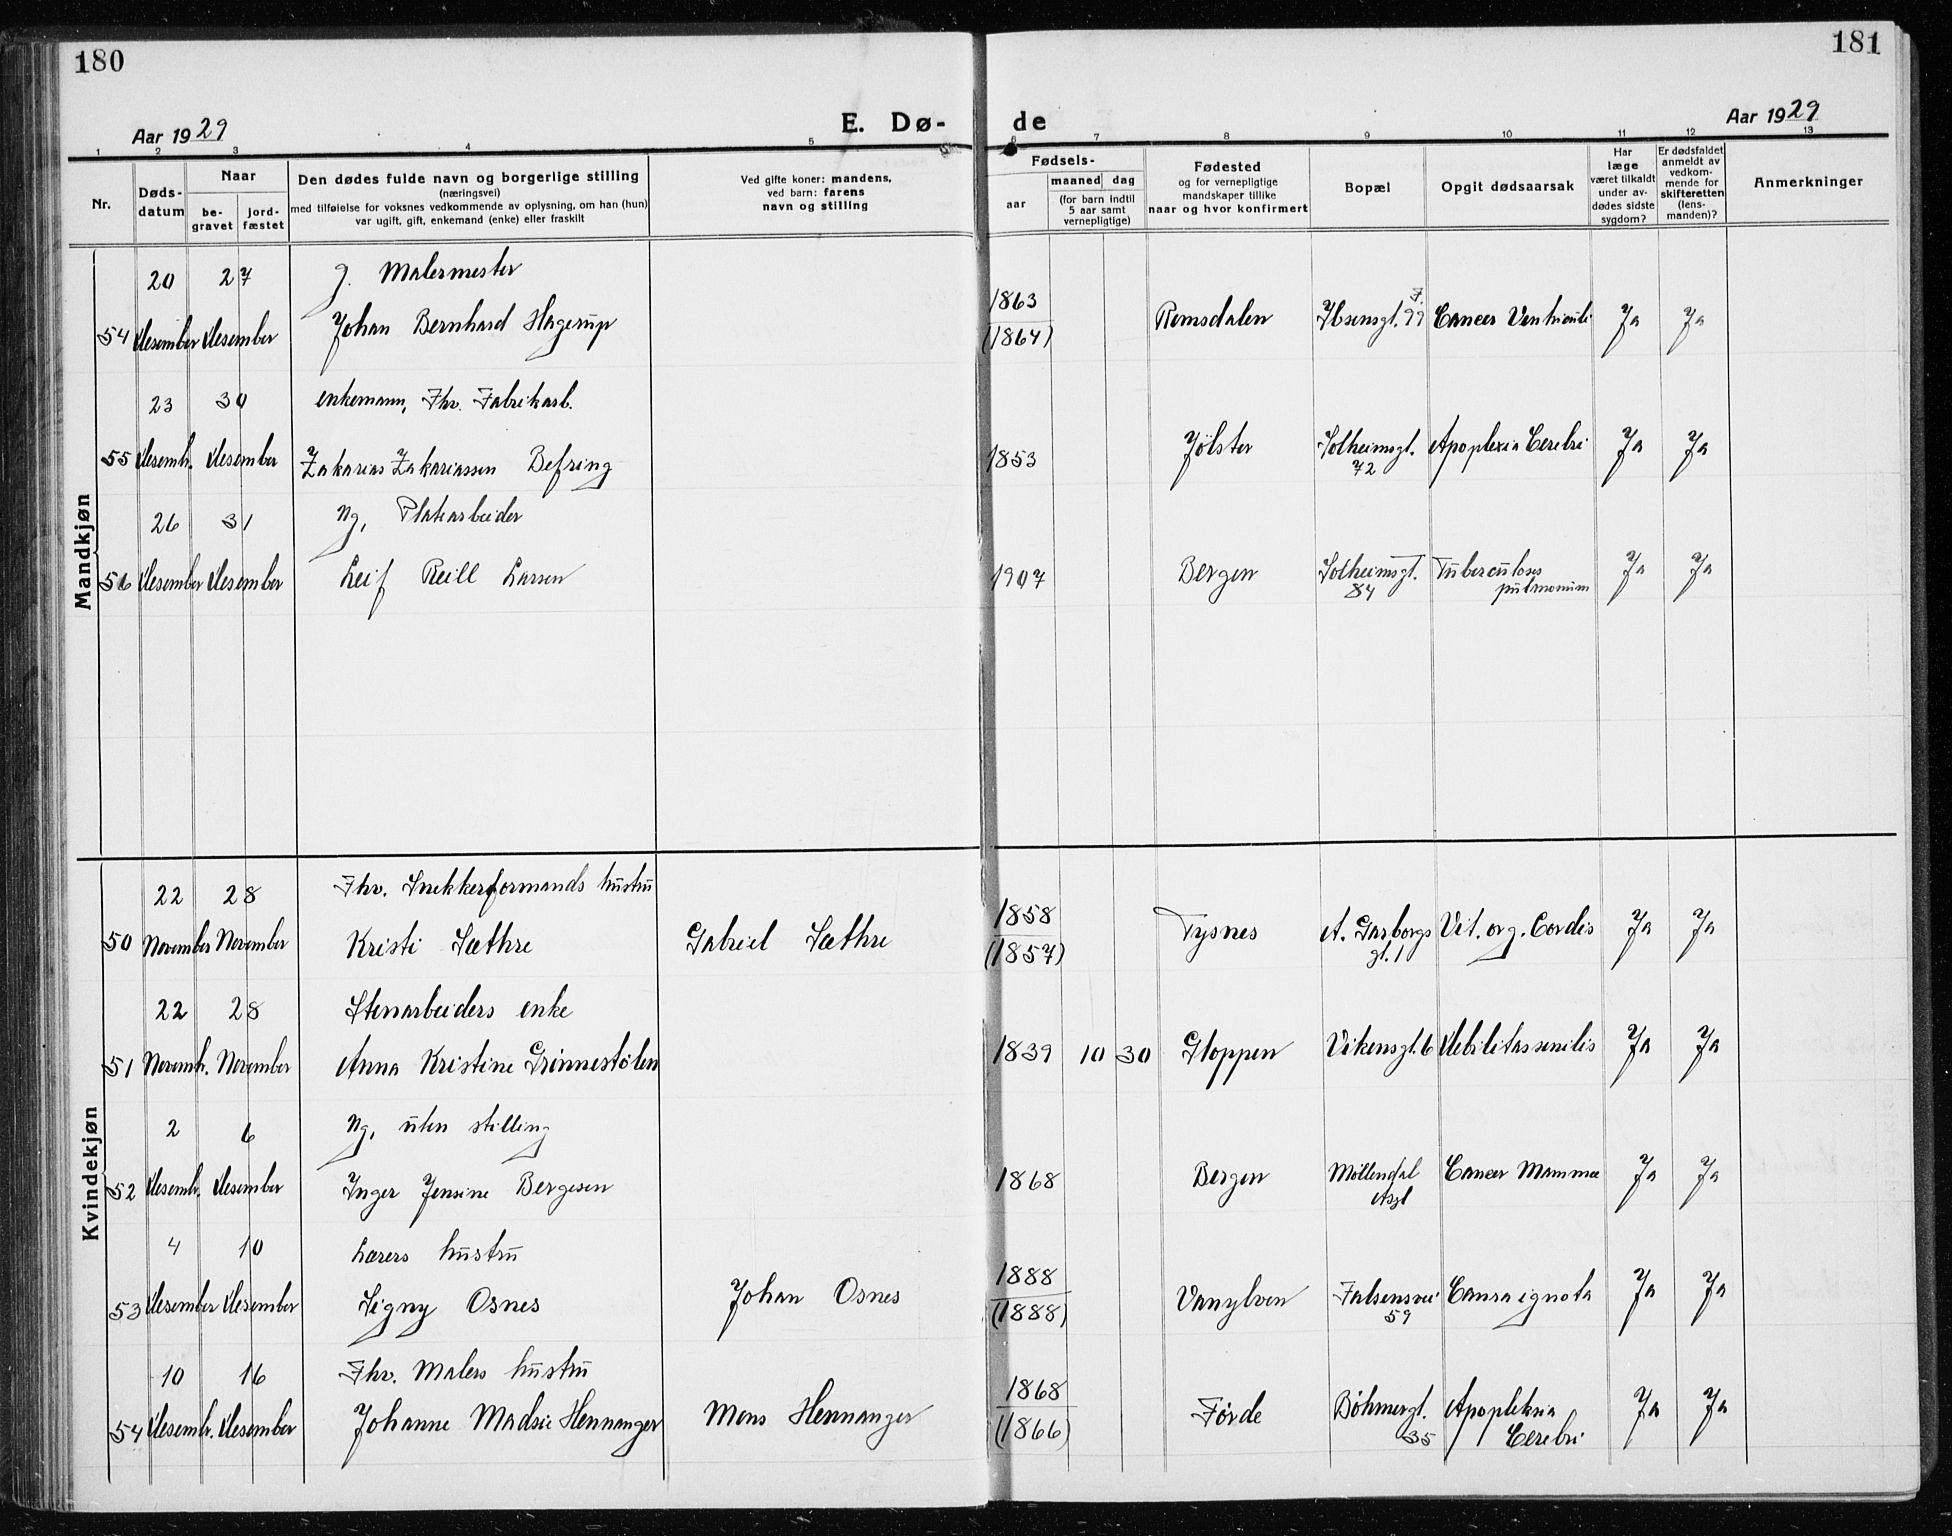 180
181
Aar 1929
E. Dø-
de
Aar 1929
1 2 3 4 5 6 7 8 9 10 11 12 13
Nr.
Døds-
datum
Naar
be-
gravet
jord-
fæstet
Den dødes fulde navn og borgerlige stilling
(næringsvei)
med tilføielse for voksnes vedkommende av oplysning, om han (hun)
var ugift, gift, enkemand (enke) eller fraskilt
Ved gifte koner: mandens,
ved barn: farens
navn og stilling
Fødsels-
aar
maaned dag
(for barn indtil
5 aar samt
vernepligtige)
Fødested
og for vernepligtige
mandskaper tillike
naar og hvor konfirmert
Bopæl
Opgit dødsaarsak
Har
læge
været tilkaldt
under av-
dødes sidste
sygdom?
Er dødsfaldet
anmeldt av
vedkom-
mende for
skifteretten
(lens-
manden)?
Anmerkninger
Mandkjøn
20 27 g. Malermester
54 Desember Desember Johan Bernhard Hagerup 1863 (1864) Romsdalen Ibsensgt. 99 Cancer Ventriculi Ja Ja
23 30 enkemann, Fhv. Fabrikarb.
55 Desemb. Desember Zakarias Zakariassen Befring 1853 Jølster Solheimsgt. 72 Apoplexia Cerebri Ja Ja
26 31 ug. Platearbeider
56 Desember Desember Leif Reill Larsen 1907 Bergen Solheimsgt. 84 Tuberculoses pulmonum Ja Ja
Kvindekjøn
22 28 Fhv. Snekkerformands hustru
50 November November Kristi Sæthre Gabriel Sæthre 1858 (1857) Tysnes A. Garborgs gt. 1 Vit. org. Cordis Ja Ja
22 28 Stenarbeiders enke
51 Novemb. November Anna Kristine Grinnestølen 1839 10 30 Gloppen Vikensgt. 6 Debilitas senilis Ja Ja
2 6 ug. uten stilling
52 Desemb. Desember Inger Jensine Bergesen 1868 Bergen Møllendal Asyl Cancer Mammae Ja Ja
4 10 Lærers hustru
53 Desember Desember Signy Osnes Johan Osnes 1888 (1888) Vanylven Falsensvei 59 Causa ignota Ja Ja
10 16 Fhv. Malers hustru
54 Desemb. Desember Johanne Madsie Hennanger Mons Hennanger 1868 (1866) Førde Bøhmergt. 35 Apoplexia Cerebri Ja Ja